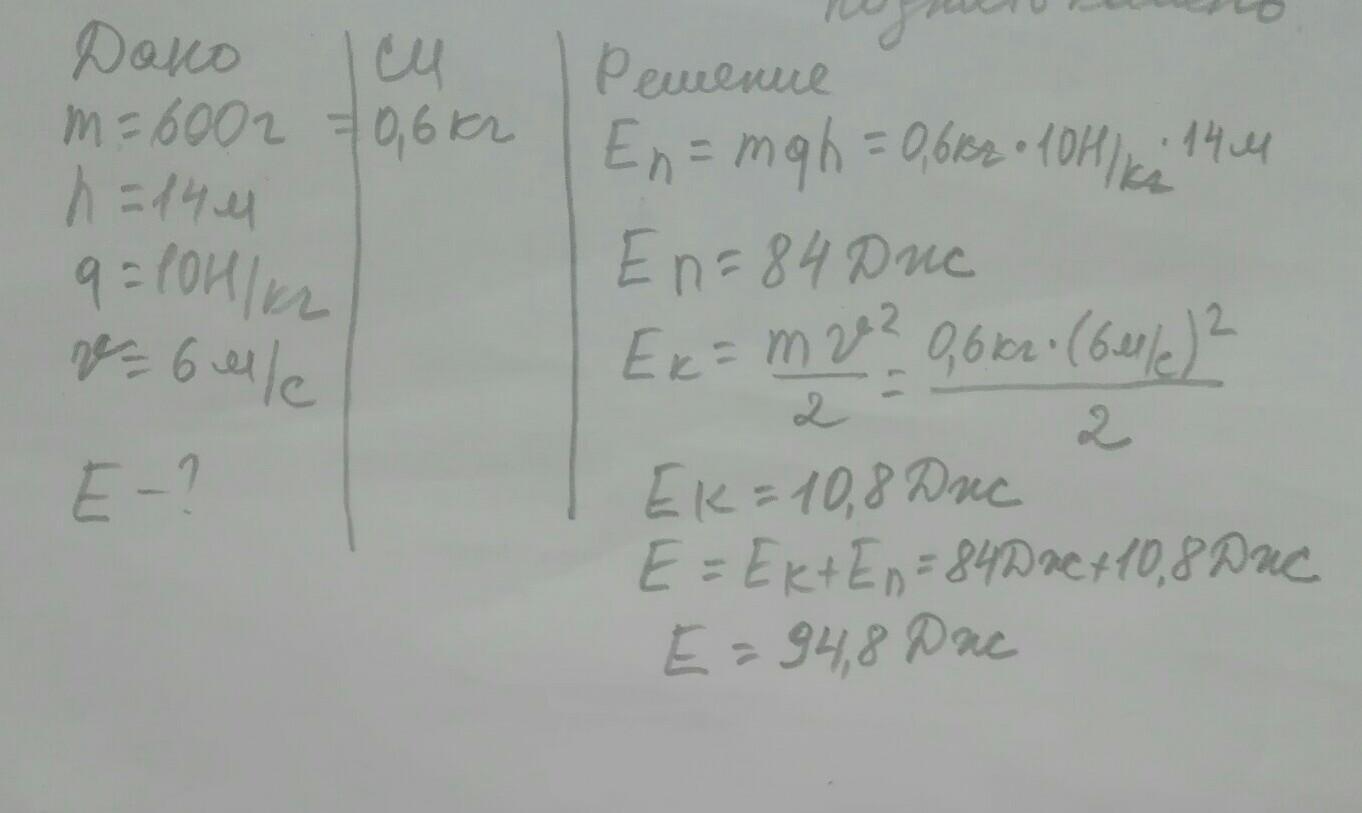 Дано
m = 600г
h = 14м
g = 10Н/кг
v = 6 м/с
E - ?
СИ
= 0,6 кг
Решение
Eп = mgh = 0,6кг · 10Н/кг · 14м
Eп = 84 Дж
Eк = mv²/2 = 0,6кг · (6м/с)²/2
Eк = 10,8 Дж
E = Eк + Eп = 84Дж + 10,8 Дж
E = 94,8 Дж